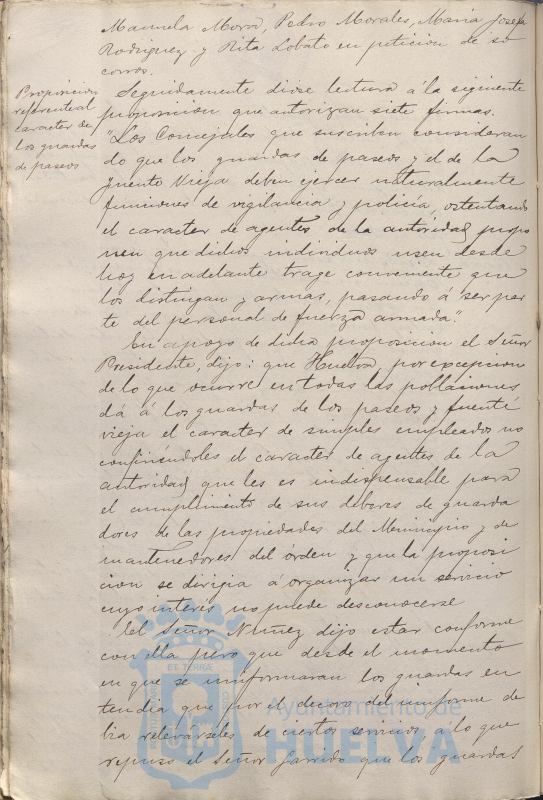 Manuela Mora, Pedro Morales, Maria Josefa
Rodriguez y Rita Lobato en peticion de so
corros.
Proposicion
referente al
caracter de
los guardas
de paseos
Seguidamente dióse lectura á la siguiente
proposicion que autorizan siete firmas.
"Los Concejales que suscriben consideran
do que los guardas de paseos y el de la
fuente Vieja deben ejercer naturalmente
funciones de vigilancia y policia, ostentando
el caracter de agentes de la autoridad, propo
nen que dichos individuos usen desde
hoy en adelante trage conveniente que
los distingan y armas, pasando á ser par
te del personal de fuerza armada".
En apoyo de dicha proposicion el Señor
Presidente, dijo: que Huelva por excepcion
de lo que ocurre en todas las poblaciones
dá á los guardas de los paseos y fuente
vieja el caracter de simples empleados no
confiriendoles el caracter de agentes de la
autoridad que les es indispensable para
el cumplimiento de sus deberes de guarda
dores de las propiedades del Municipio y de
mantenedores del órden y que la proposi
cion se dirigia a organizar un servicio
cuyo interés no puede desconocerse
El Señor Nuñez dijo estar conforme
con ella pero que desde el momento
en que se uniformaran los guardas en
tendia que por el decoro del uniforme de
bia relevárseles de ciertos servicios, a lo que
repuso el Señor Garrido que los guardas
ET TERRAE
Ayuntamiento de
HUELVA